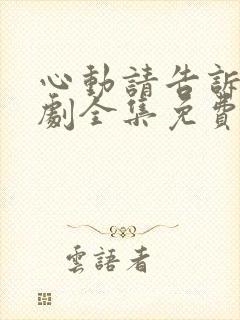 心動請告訴
劇全集免費
雲語者